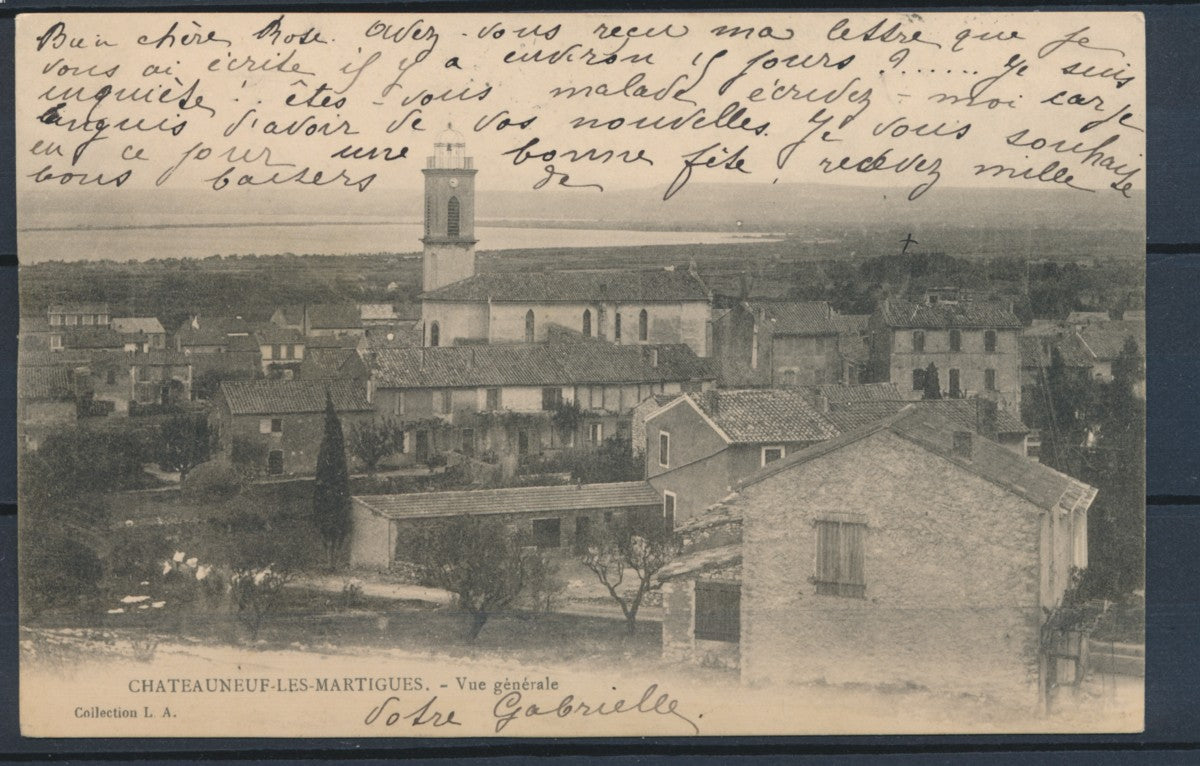 Bien chère Rose. Avez-vous reçu ma lettre que je
vous ai écrite il y a environ 15 jours ?...... Je suis
inquiète ! êtes-vous malade écrivez-moi car je
languis d'avoir de vos nouvelles. Je vous souhaite
en ce jour une bonne fête, recevez mille
bons baisers de
CHATEAUNEUF-LES-MARTIGUES. - Vue générale
Collection L. A.
Votre Gabrielle.